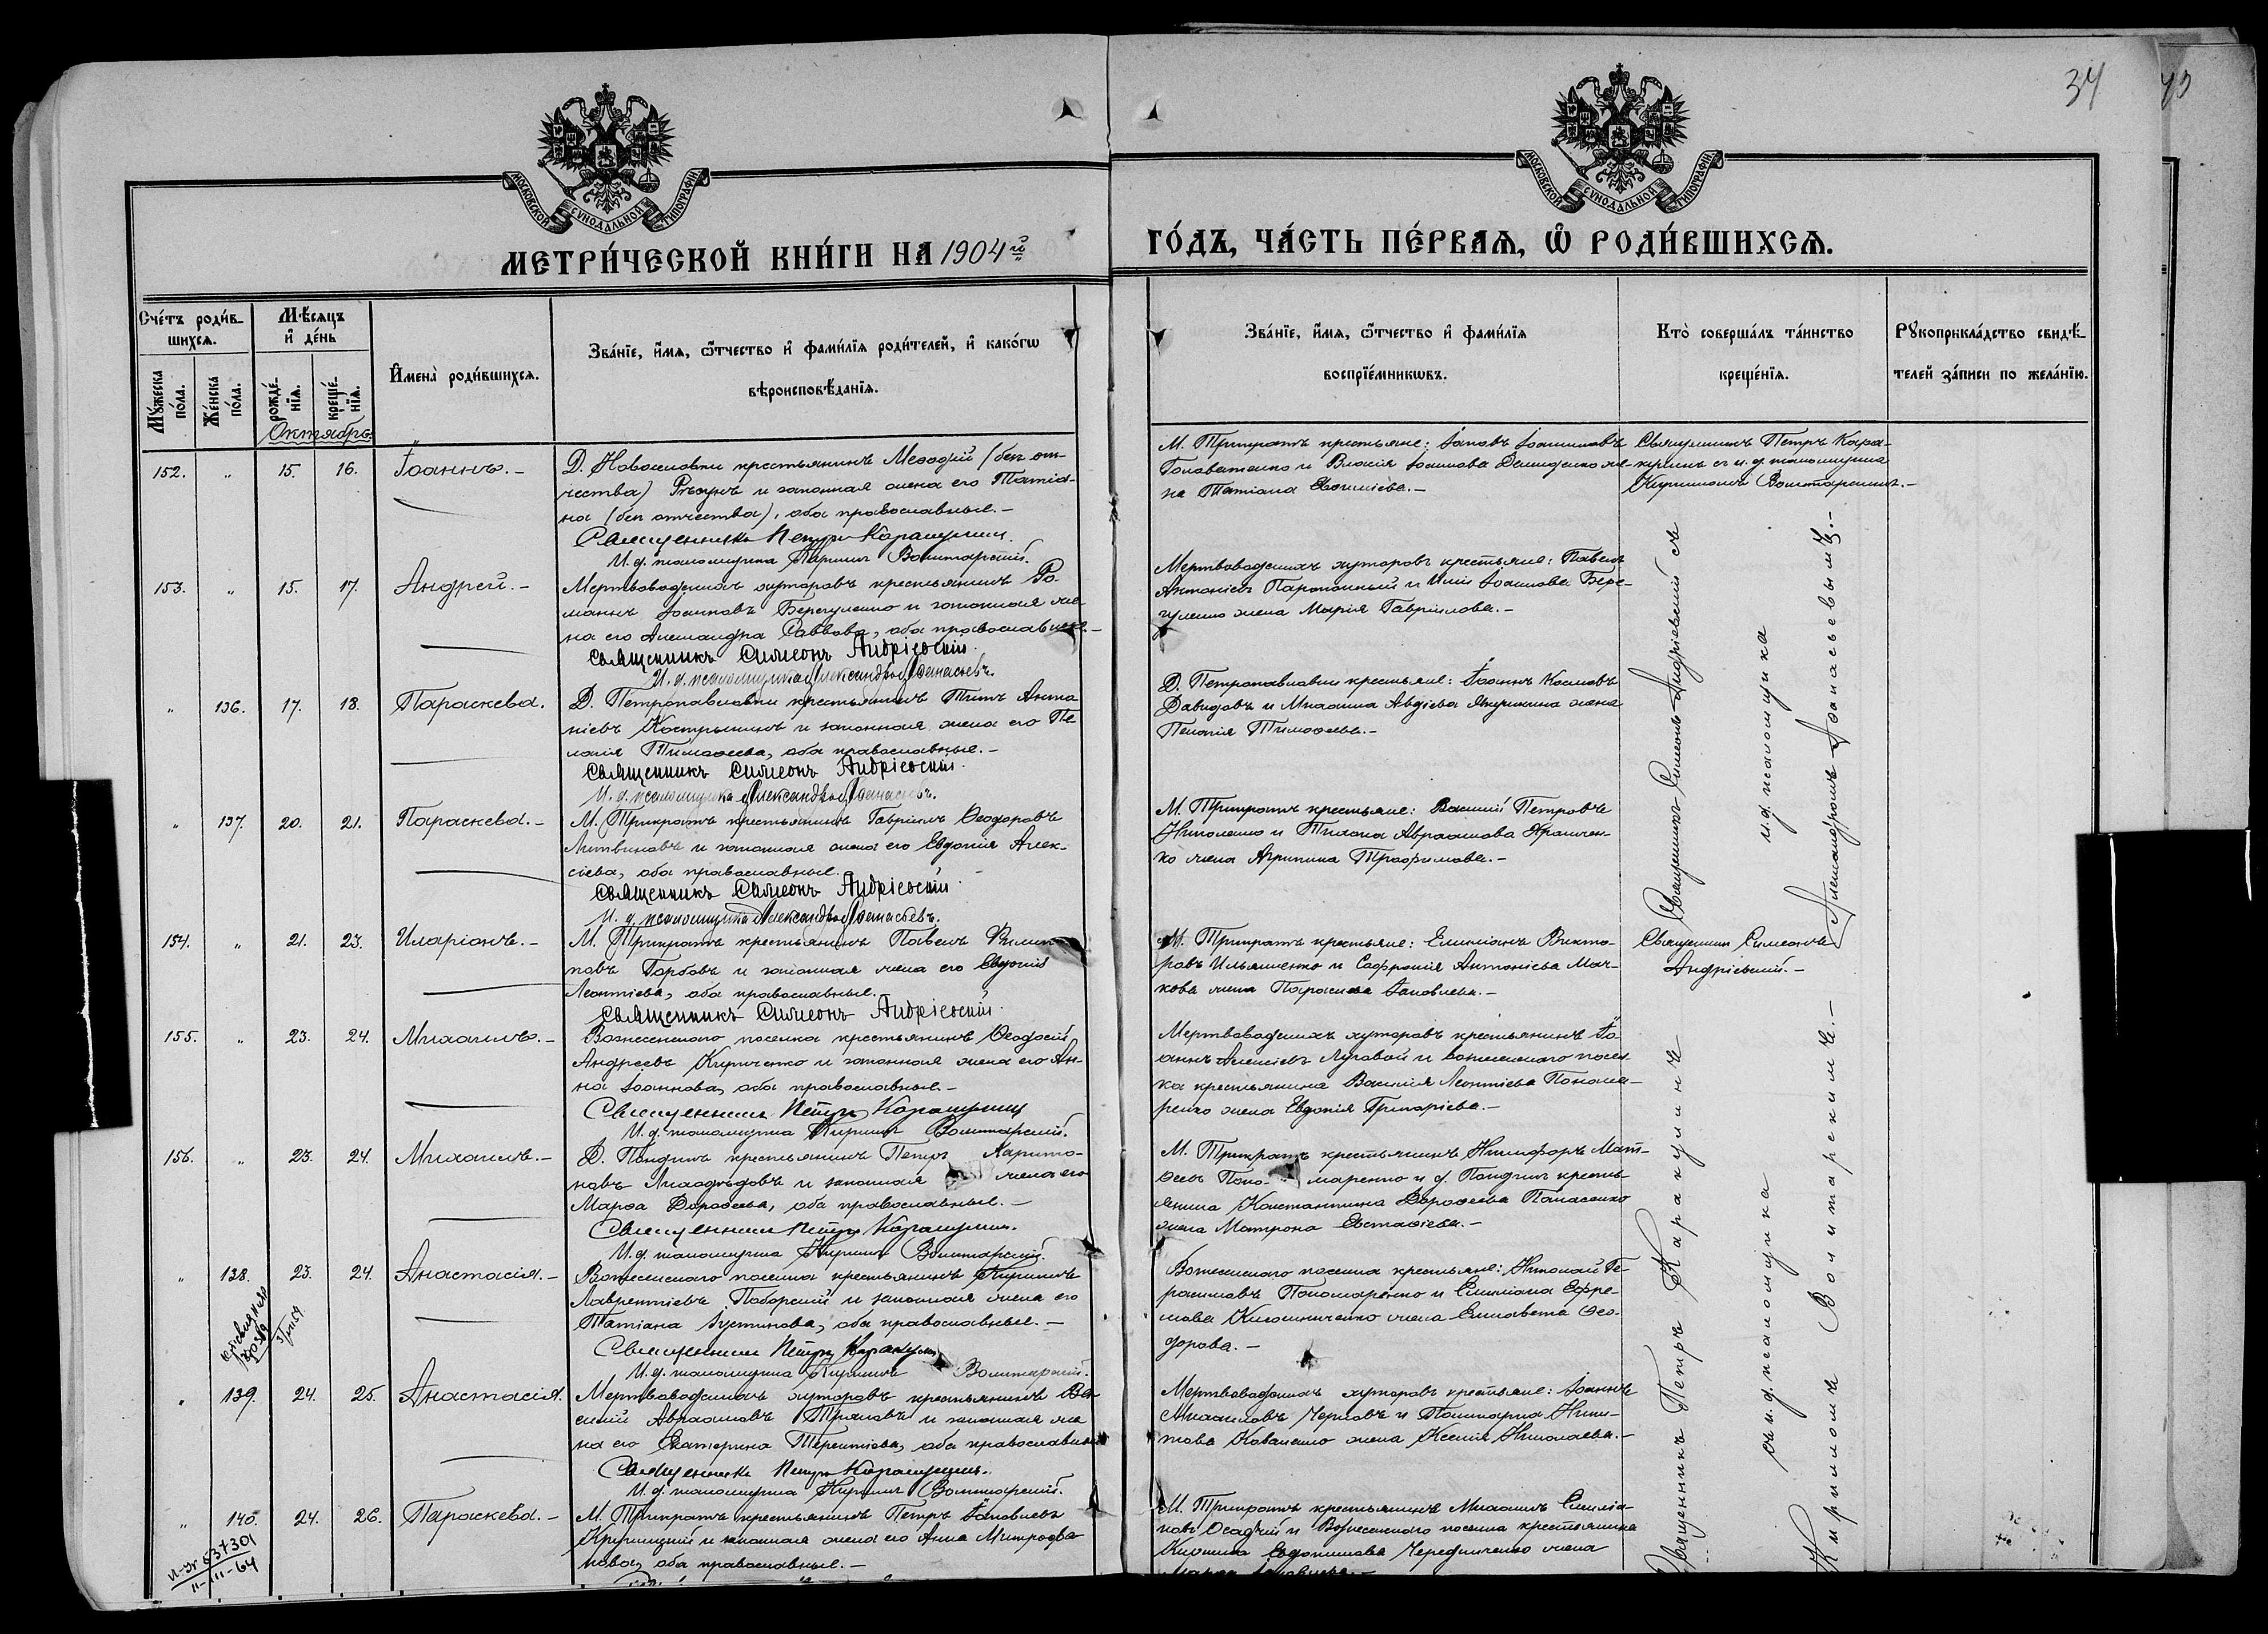 34
МОСКОВСКОЙ СѴНОДАЛЬНОЙ ТИПОГРАФІИ
МОСКОВСКОЙ СѴНОДАЛЬНОЙ ТИПОГРАФІИ
МЕТРИ́ЧЕСКОЙ КНИ́ГИ НА 1904й
ГО́ДЪ, ЧА́СТЬ ПЕ́РВАѦ, Ѡ РОДИ́ВШИХСѦ.
Сче́тъ роди́в-
шихсѧ.
Мꙋжеска по́ла.
Же́нска по́ла.
Мѣсѧцъ
и́ де́нь
рожде́-
нїѧ.
креще́-
нїѧ.
И҆мена̀ роди́вшихсѧ.
Зва́нїе, и҆́мѧ, ѻ҆́тчество и҆ фами́лїѧ роди́телей, и҆ како́гѡ
вѣроисповѣ́данїѧ.
Зва́нїе, и҆́мѧ, ѻ҆́тчество и҆ фами́лїѧ
воспрїе́мникѡвъ.
Кто̀ соверша́лъ та́инство
креще́нїѧ.
Рꙋкоприкла́дство свидѣ́-
телей за́писи по жела́нїю.
Октябрь.
152. " 15. 16. Іоаннъ.-
Д. Новоселовки крестьянинъ Меѳодій (безъ от-
чества) и законная жена его Татіа-
на (безъ отчества), оба православные.-
Священникъ Петръ Каракулинъ.
И.д. псаломщика Кириллъ Волитарскій.
М. Трикратъ крестьяне: Іаковъ Іоанновъ
Головатенко и Власія Іоаннова же-
на Татіана
Священникъ Петръ Кара-
кулинъ съ и.д. псаломщика
Кирилломъ Волитарскимъ.-
153. " 15. 17. Андрей.-
Мертвоводскихъ хуторовъ крестьянинъ Ро-
манъ Іоанновъ Берегуленко и законная же-
на его Александра Саввова, оба православные.-
Священникъ Симеонъ Андріевскій.
И.д. псаломщика Александръ Аѳанасьевъ.
Мертвоводскихъ хуторовъ крестьяне: Павелъ
Антоніевъ и Іоаннова Бере-
гуленко жена Марія Гавріилова.-
" 136. 17. 18. Параскева.
Д. Петропавловки крестьянинъ Титъ Анто-
ніевъ и законная жена его Пе-
лагія Тимоѳеева, оба православные.-
Священникъ Симеонъ Андріевскій.
И.д. псаломщика Александръ Аѳанасьевъ.
Д. Петропавловки крестьяне: Іоаннъ Космовъ
Давидовъ и Михаила Авдіева жена
Пелагія Тимоѳеева.-
" 137. 20. 21. Параскева.-
М. Трикратъ крестьянинъ Гавріилъ Ѳеодоровъ
Литвиновъ и законная жена его Евдокія Алек-
сіева, оба православные.
Священникъ Симеонъ Андріевскій.
И.д. псаломщика Александръ Аѳанасьевъ.
М. Трикратъ крестьяне: Василій Петровъ
Николенко и Тихона Авраамова
ко жена Агрипина Трофимова.-
Священникъ Симеонъ Андріевскій съ
и.д. псаломщика
Александромъ Аѳанасьевымъ.-
154. " 21. 23. Иларіонъ.-
М. Трикратъ крестьянинъ Павелъ Филип-
повъ Горбовъ и законная жена его Евдокія
Леонтіева, оба православные.-
Священникъ Симеонъ Андріевскій.
М. Трикратъ крестьяне: Емиліанъ Викто-
ровъ Ильяшенко и Софронія Антоніева Мач-
кова жена Параскева Іаковлева.-
Священникъ Симеонъ
Андріевскій.-
155. " 23. 24. Михаилъ.-
Вознесенскаго поселка крестьянинъ Ѳеодосій
Андреевъ Кириченко и законная жена его Ан-
на Іоаннова, оба православные.-
Священникъ Петръ Каракулинъ
И.д. псаломщика Кириллъ Волитарскій.
Мертвоводскихъ хуторовъ крестьянинъ Іо-
аннъ Алексіевъ Луговой и Вознесенскаго посел-
ка крестьянина Василія Леонтіева Понома-
ренко жена Евдокія Григоріева.-
156. " 23. 24. Михаилъ.-
Д. крестьянинъ Петръ Харито-
новъ и законная жена его
Марѳа Дороѳеева, оба православные.-
Священникъ Петръ Каракулинъ.
И.д. псаломщика Кириллъ Волитарскій.
М. Трикратъ крестьянинъ Никифоръ Мат-
ѳеевъ Поно-маренко и д. кресть-
янина Константина Дороѳеева Панасенко
жена Матрона Евстаѳіева.-
" 138. 23. 24. Анастасія.-
Вознесенскаго поселка крестьянинъ Кириллъ
Лаврентіевъ и законная жена его
Татіана Іустинова, оба православные.-
Священникъ Петръ Каракулинъ
И.д. псаломщика Кириллъ Волитарскій.
Вознесенскаго поселка крестьяне: Николай Ге-
расимовъ Пономаренко и Емиліана Ефре-
мова жена Елисавета Ѳео-
дорова.-
" 139. 24. 25. Анастасія.
Мертвоводскихъ хуторовъ крестьянинъ Ва-
силій Авраамовъ и законная же-
на его Екатерина Терентіева, оба православные
Священникъ Петръ Каракулинъ.
И.д. псаломщика Кириллъ Волитарскій.
Мертвоводскихъ хуторовъ крестьяне: Іоаннъ
Михаиловъ Черновъ и Поликарпа Ники-
това Коваленко жена Ксенія Николаева.-
" 140. 24. 26. Параскева.-
М. Трикратъ крестьянинъ Петръ Іаковлевъ
Крупицкій и законная жена его Анна Митрофа-
нова, оба православные.-
М. Трикратъ крестьянинъ Михаилъ Емиліа-
новъ Осадчій и Вознесенскаго поселка крестьянина
Евдокимова Чередниченко жена
Священникъ Петръ Каракулинъ
съ и.д. псаломщика
Кирилломъ Волитарскимъ.-
637301
11-III-64